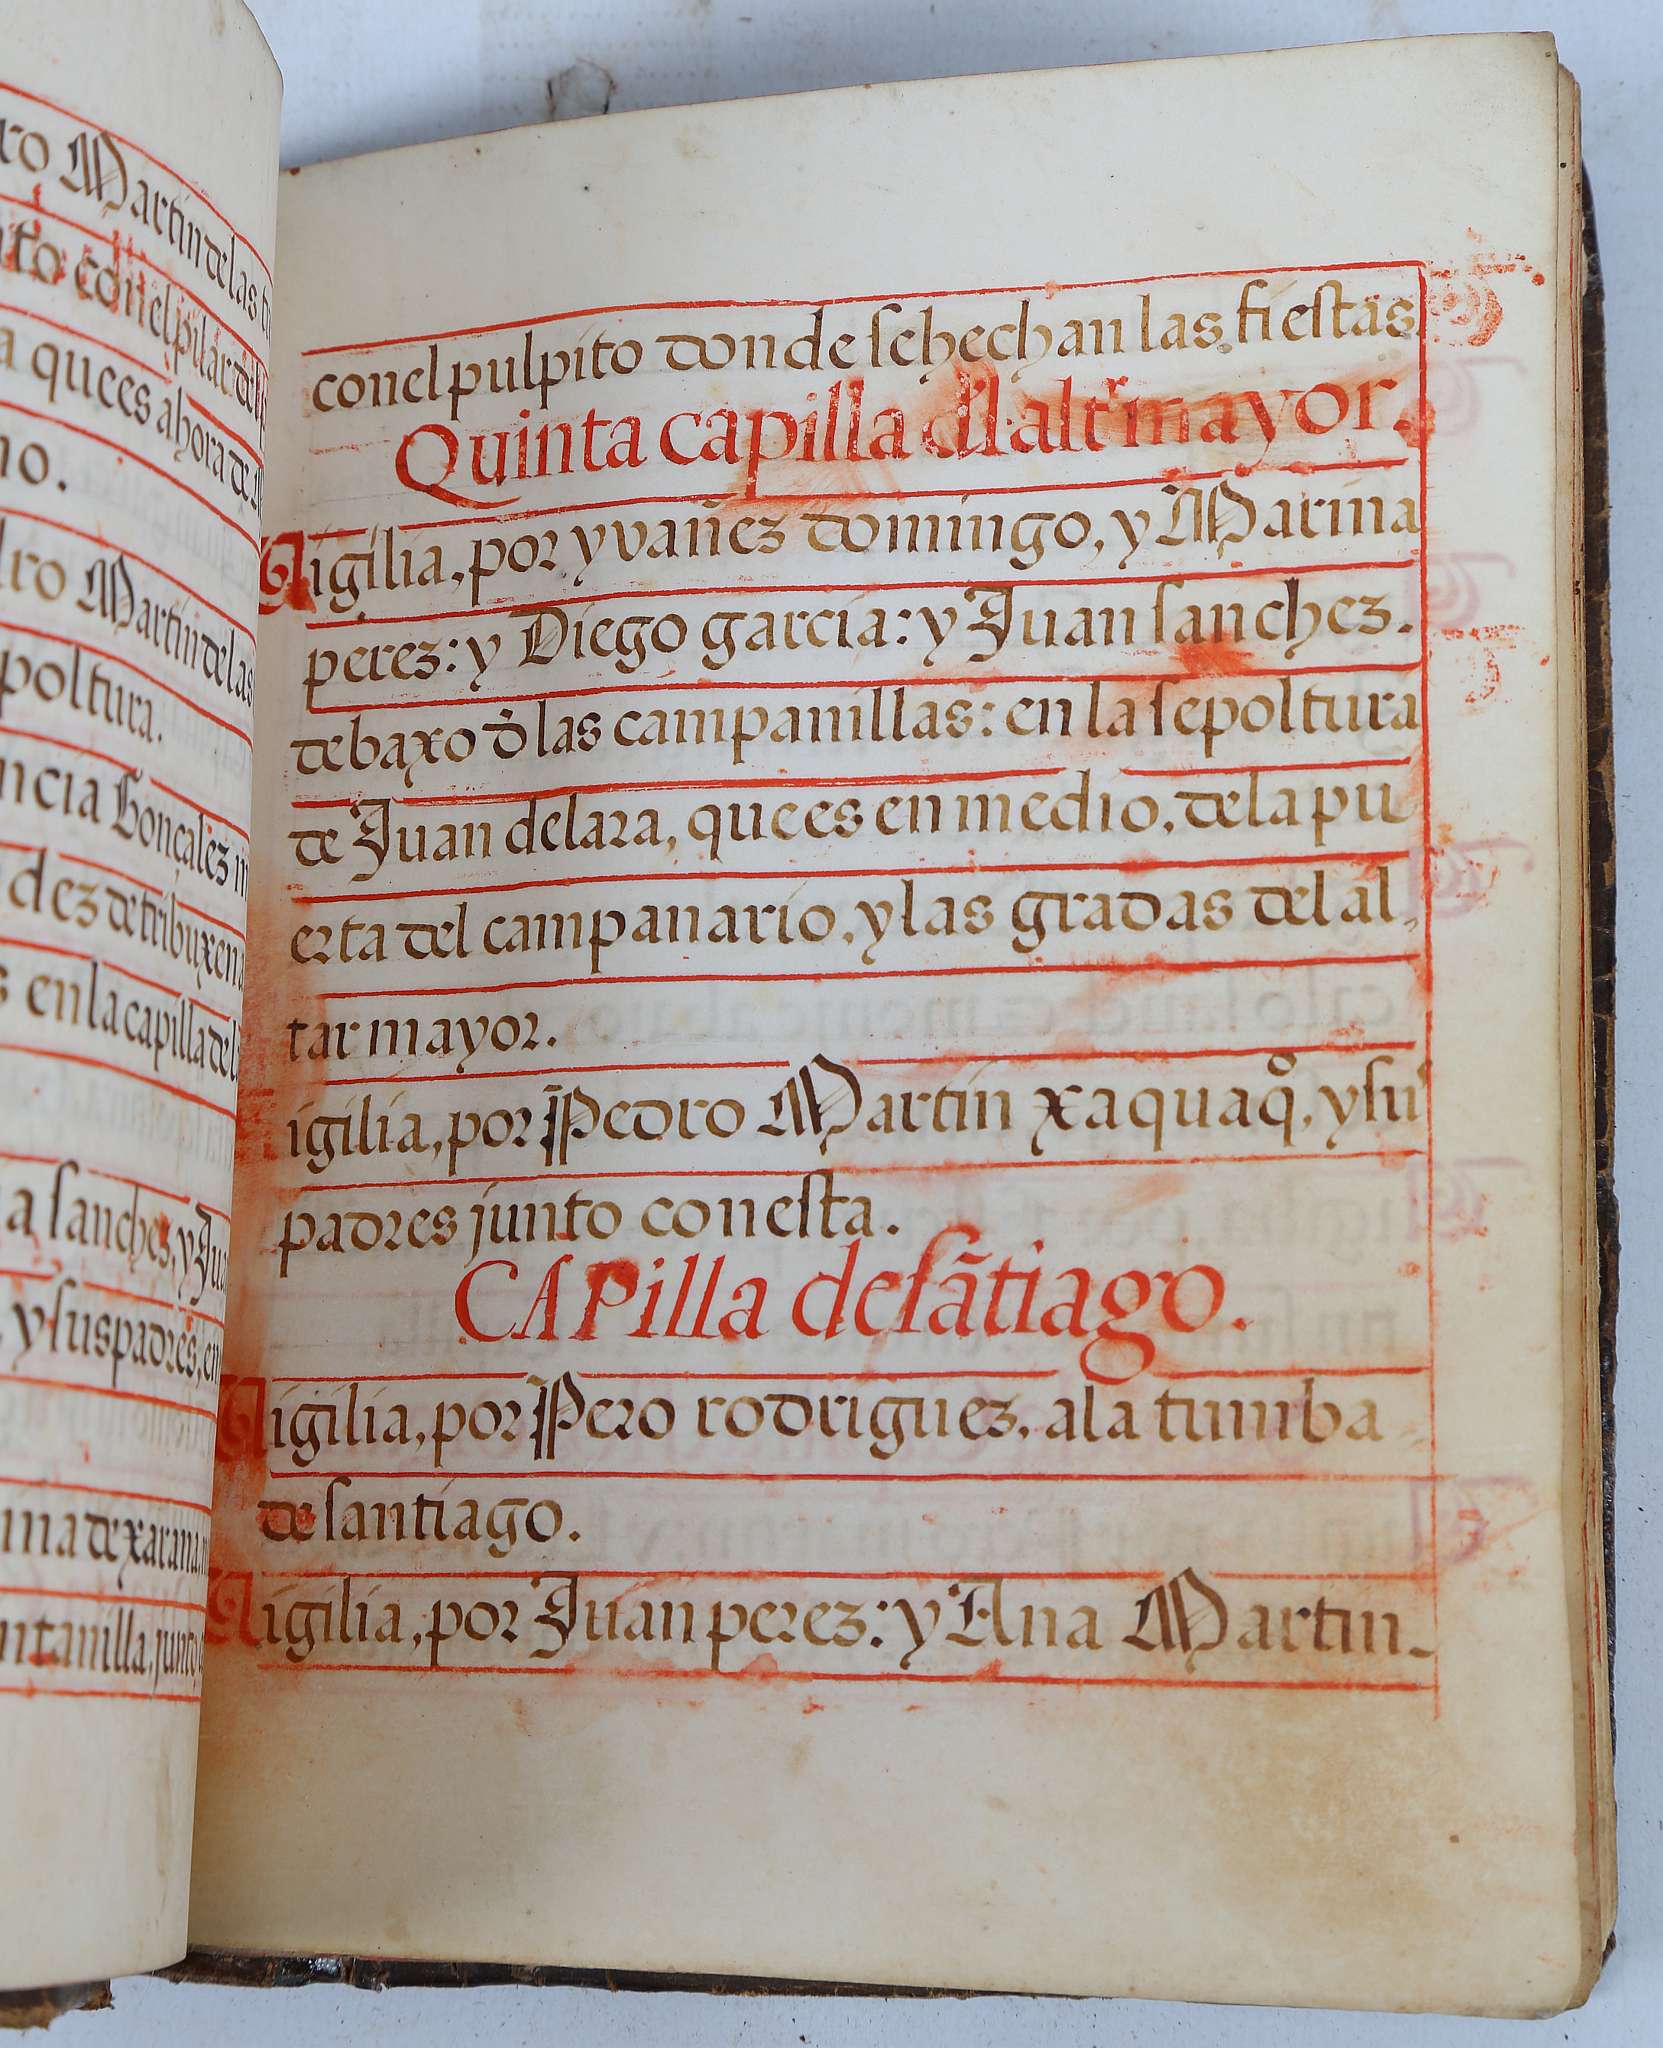 ro Martin de las
nto con el pilar del p
a que es ahora de
no.
dro Martin de las
poltura.
ncia Gonçalez
dez de tribuxena
s en la capilla del
a sanches, y Jua
y sus padres, en
ina de xarana,
ntanilla, junto
con el pulpito donde sehechan las fiestas.
Quinta capilla dl altr mayor.
Vigilia, por yvañez domingo, y Marina
perez: y Diego garcia: y Juan sanchez.
debaxo d̄ las campanillas: en la sepoltura
de Juan delara, que es en medio, de la pu
erta del campanario, y las gradas del al,
tar mayor.
igilia, por Pedro Martin xaquaq̊, y su
padres junto con esta.
CAPilla de sãtiago.
Vigilia, por Pero rodriguez, a la tumba
de santiago.
Vigilia, por Juan perez: y Ana Martin-